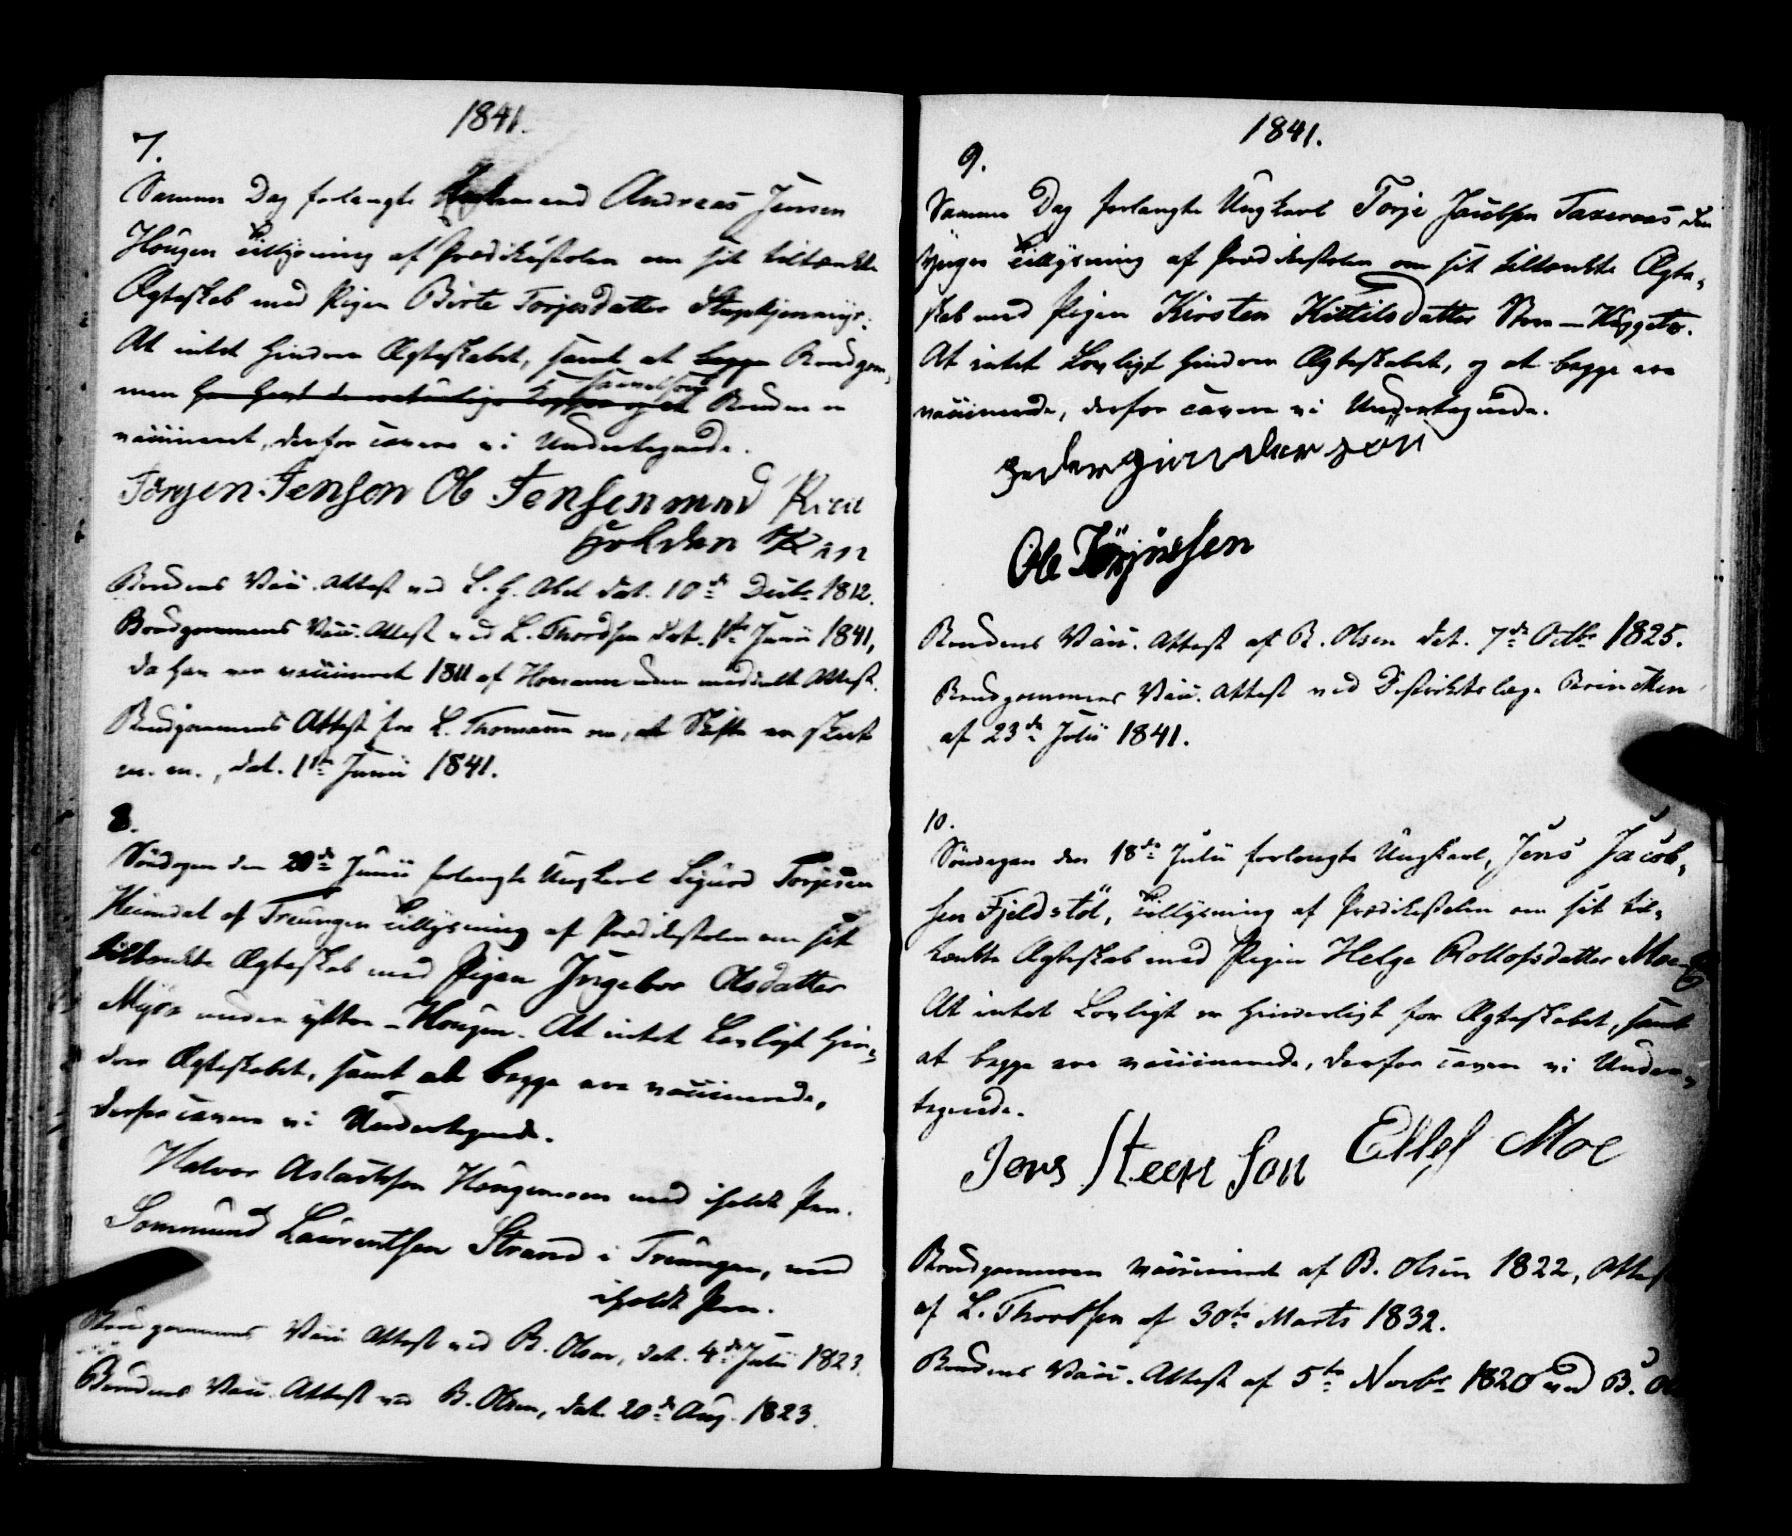 1841.
7.
Samme Dag forlangte Andreas Jensen
Hougen Tillysning af Prædikestolen om sit tiltænkte
Ægteskab med Pigen Birte Torjesdatter
At intet hindrer Ægteskabet, samt at begge Brudgom,
men samt Bruden er
vaccineret, derfor cavere vi Undertegnede.
Jörgen Jensen Ole Jensen med
holden Pen
Brudens Vacc. Attest ved L. H. Abel dat. 10de Decbr 1812.
Brudgommens Vacc. Attest ved L. Thordsen dat. 1ste Junii 1841,
da han var vaccineret 1811 af uden meddeelt Attest.
Brudgommens Attest fra L. Thomassen om, at Skifte er skeet
m. m., dat. 1ste Junii 1841.
8.
Söndagen den 20de Junii forlangte Ungkarl Sigurd Torjesen
Heimdal af Treungen Tillysning af Prædikestolen om sit
tiltænkte Ægteskab med Pigen Ingebor Olsdatter
Myra under ytter-Hougen. At intet Lovligt hin,
drer Ægteskabet, samt at begge ere vaccinerede,
derfor cavere vi Undertegnede.
Halvor Aslaksen Hougemoen med iholdt Pen.
Sommund Laurentsen Strand i Treungen, med
iholdt Pen.
Brudgommens Vacc. Attest ved B. Olsen, dat. 4de Julii 1823.
Brudens Vacc. Attest ved B. Olsen, dat. 20de Aug. 1823.
1841.
9.
Samme Dag forlangte Ungkarl Torje Jacobsen Taxeraas den
yngre Tillysning af Prædikestolen om sit tiltænkte Ægte,
skab med Pigen Kirsten Kittilsdatter
At intet Lovligt hindrer Ægteskabet, og at begge ere
vaccinerede, derfor cavere vi Undertegnede.
Peder gunderson
Ole Törjussen
Brudens Vacc. Attest af B. Olsen dat. 7de Octbr 1825.
Brudgommens Vacc. Attest ved Districtslæge
af 23de Julii 1841.
10.
Söndagen den 18de Julii forlangte Ungkarl, Jens Jacob,
sen Fjeldstöl, Tillysning af Prædikestolen om sit til,
tænkte Ægteskab med Pigen Helge Rollofsdatter Moe
At intet Lovligt er hinderligt for Ægteskabet, samt
at begge ere vaccinerede, derfor cavere vi Under,
tegnede.
Jens Steen son Ellef Moe
Brudgommen vaccineret af B. Olsen 1822, Attest
af L. Thordsen af 30te Marts 1832.
Brudens Vacc. Attest af 5te Novbr 1820 ved B.